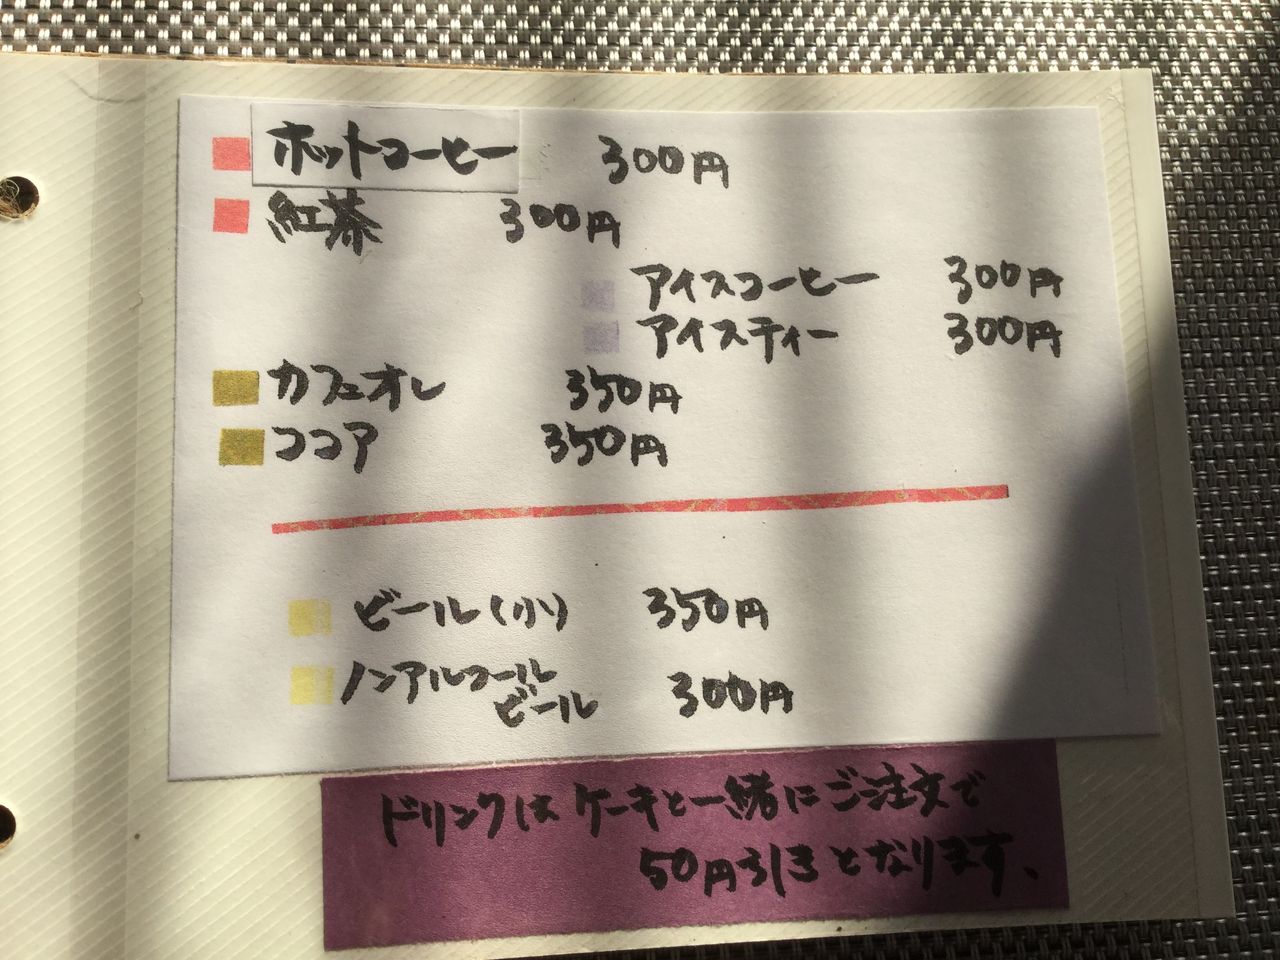 ホットコーヒー 300円
紅茶 300円
アイスコーヒー 300円
アイスティー 300円
カフェオレ 350円
ココア 350円
ビール(小) 350円
ノンアルコール
ビール 300円
ドリンクはケーキと一緒にご注文で
50円引きとなります、